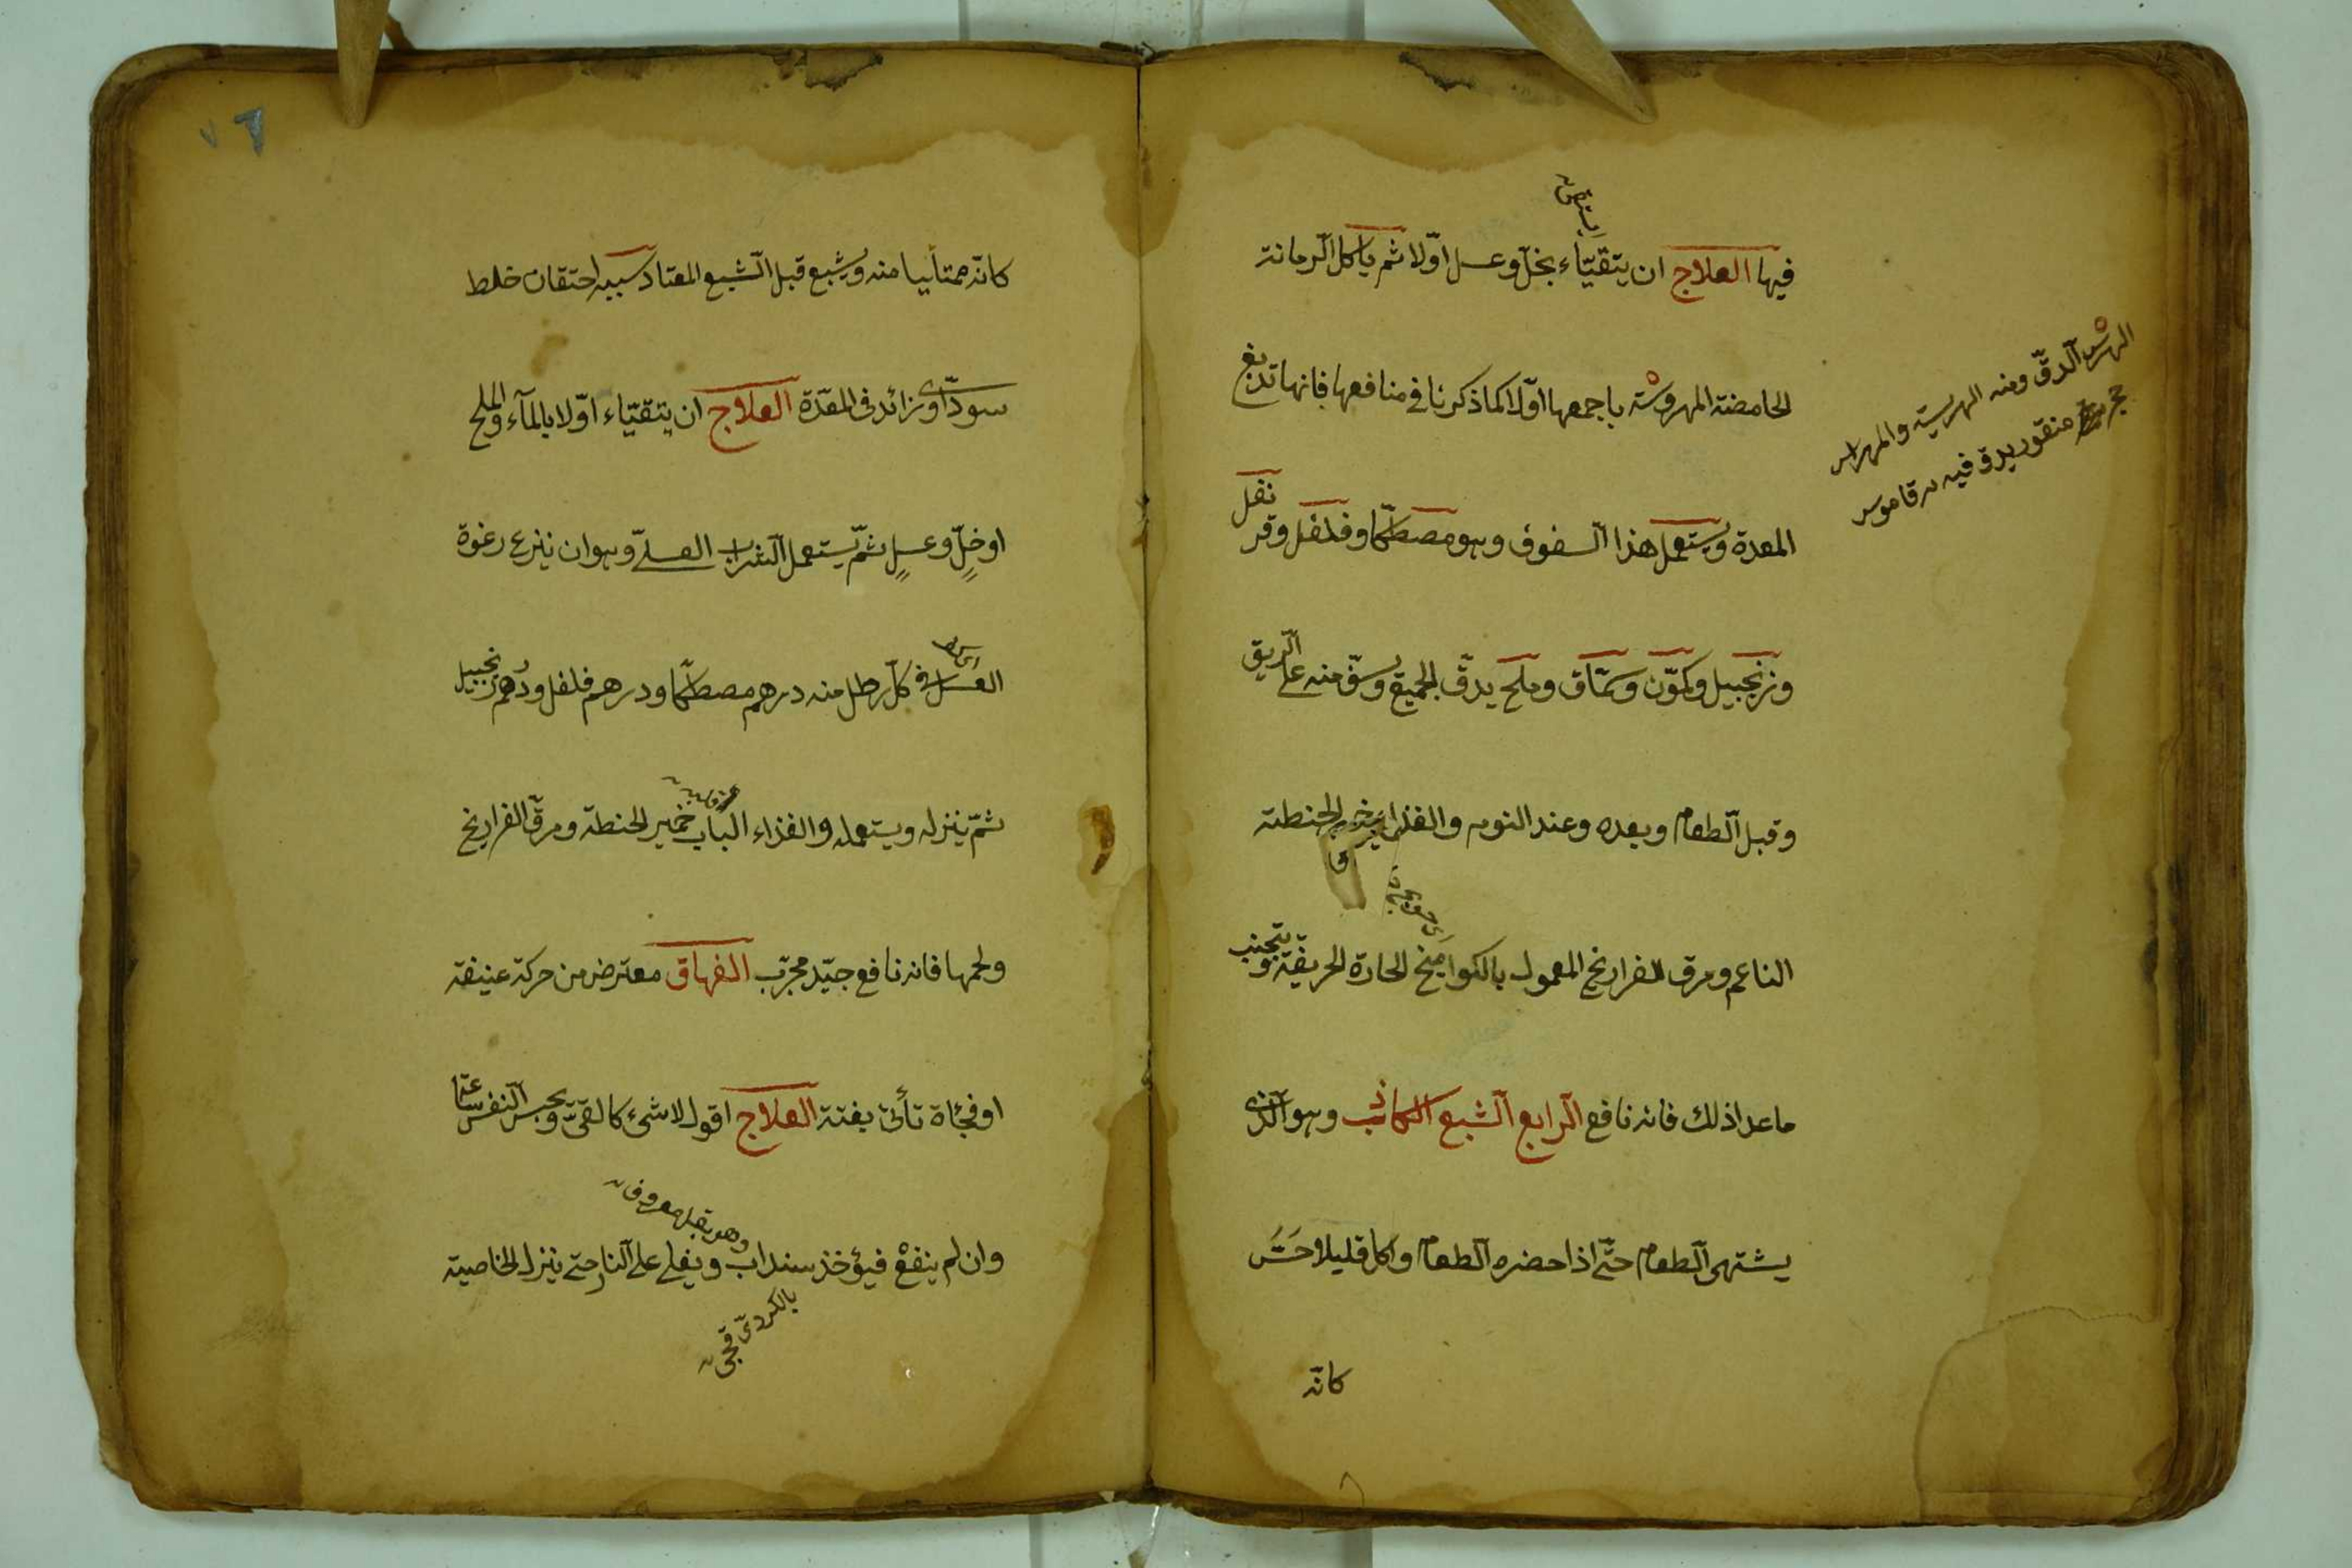 فيها العلاج ان يتقيّاء بخلّ وعسل اوّلا ثم ياكل الرمانة
الحامضة المهروسة باجمعها اوّلا كما ذكرنا في منافعها فانها تدبغ
المعدة ويستعمل هذا السفوف وهو مصطكا وفلفل وقرنفل
وزنجبيل وكمّون وسمّاق وملح يدقّ الجميع ويسفّ منه على الريق
وقبل الطعام وبعده وعند النوم والغذاء خبز الحنطة
الناعم ومرق الفراريخ المعمول بالكوامخ الحادة الحريفة ويتجنب
ما عدا ذلك فانه نافع الرابع الشبع الكاذب وهو الذى
يشتهى الطعام حتّى اذا حضره الطعام واكل قليلا حسّ
كانّه
الهرس الدقّ ومنه الهريسة والمهراس
حجر منقور يدق فيه قاموس
٧٦
كانّه ممتلئا منه ويشبع قبل الشبع المعتاد سببه احتقان خلط
سوداوى زائد فى المعدة العلاج ان يتقيّاء اوّلا بالمآء والملح
او خلٍّ وعسلٍ ثمّ يستعمل الشراب العسلىّ وهو ان ينزع رغوة
العسل فى كلّ رطل منه درهم مصطكا ودرهم فلفل ودرهم زنجبيل
ثمّ ينزله ويستعمله والغذاء لباب خمير الحنطة ومرق الفراريخ
ولحمها فانه نافع جيّد مجرّب الفهاق معترض من حركة عنيفة
او فجئاة تأتى بغتة العلاج اقول لاشئ كالقئّ وبحبس النفس ساعة
وان لم ينفع فيؤخذ سنداب ويغلى على النار حتى ينزل الخاصية
وهو بقل معروف
بالكردىّ